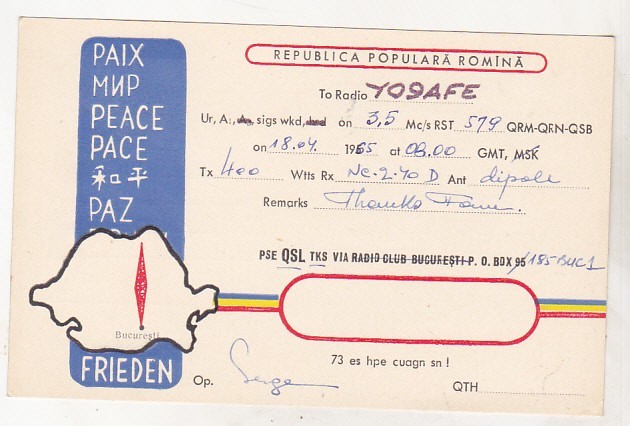 PAIX
МИР
PEACE
PACE
和平
PAZ
București
FRIEDEN
REPUBLICA POPULARĂ ROMÎNĂ
To Radio YO9AFE
Ur, A., A., sigs wkd, hrd on 3,5 Mc/s RST 579 QRM-QRN-QSB
on 18.04. 1965 at 08.00 GMT, MSK
Tx 400 Wtts Rx Nc-2-40 D Ant dipole
Remarks Thanks
PSE QSL TKS VIA RADIO CLUB BUCUREȘTI P. O. BOX 95/185 BUC 1
73 es hpe cuagn sn !
Op. Serge QTH